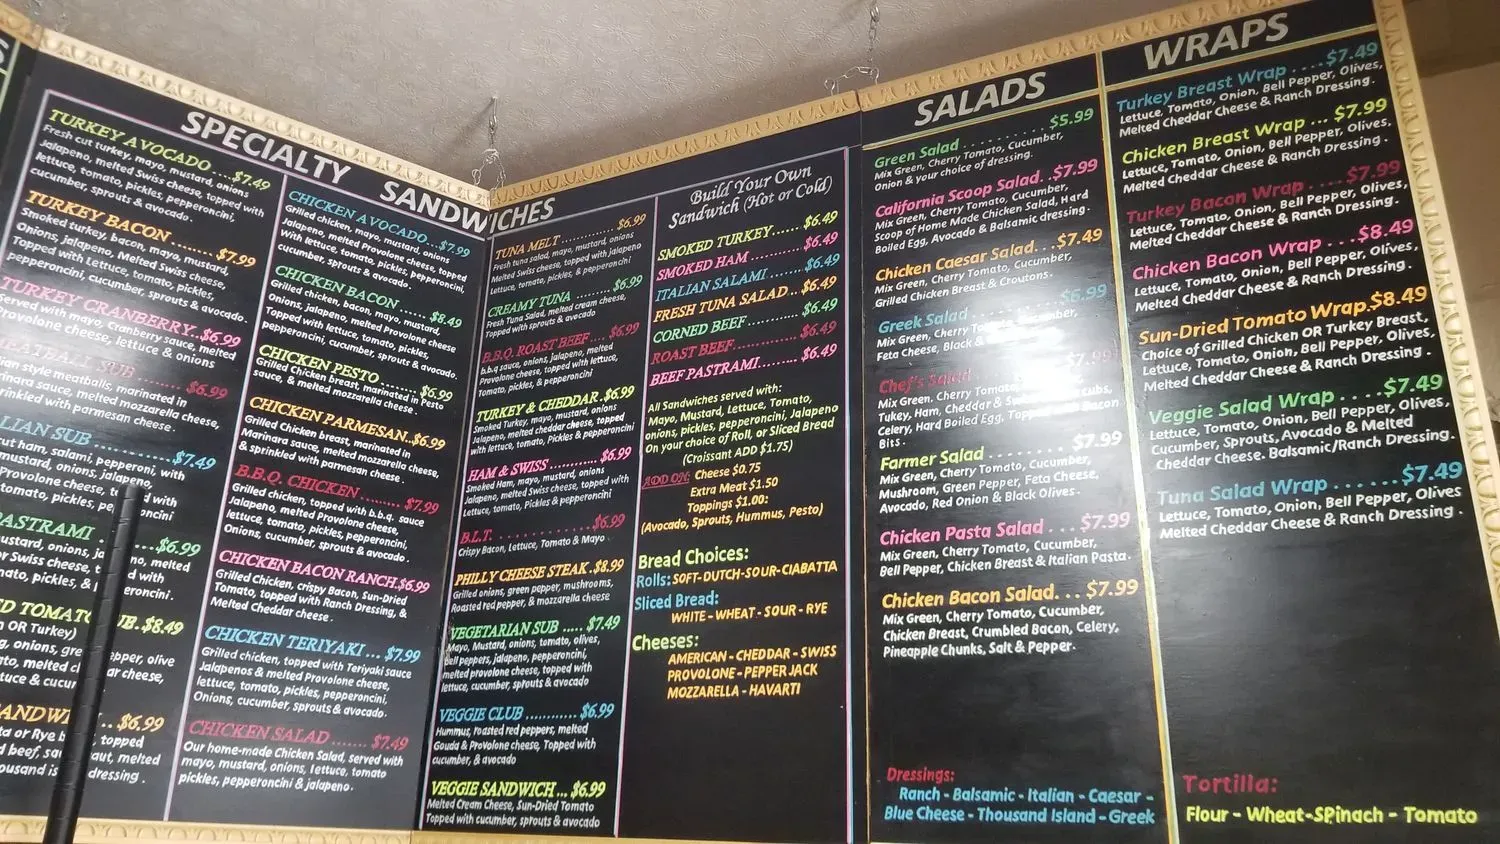 SPECIALTY SANDWICHES
TURKEY AVOCADO ....$7.49
Fresh cut turkey, mayo, mustard, onions,
Jalapeno, melted Swiss cheese, topped with
lettuce, tomato, pickles, pepperoncini,
cucumber, sprouts & avocado.
TURKEY BACON ........$7.99
Smoked turkey, bacon, mayo, mustard,
Onions, jalapeno, Melted Swiss cheese,
Topped with Lettuce, tomato, pickles,
pepperoncini, cucumber, sprouts & avocado.
TURKEY CRANBERRY..$6.99
Served with mayo, Cranberry sauce, melted
Provolone cheese, lettuce & onions
SUB ....... $6.99
style meatballs, marinated in
sauce, melted mozzarella cheese,
with parmesan cheese.
SUB ..........$7.49
cut ham, salami, pepperoni, with
mustard, onions, jalapeno,
with
tomato, pickles,
PASTRAMI .....$6.99
mustard, onions, melted
or Swiss cheese, with
tomato, pickles, &
TOMATO .$8.49
OR Turkey)
onions, olive
melted cheese,
&
.. $6.99
or Rye topped
beef, melted
dressing.
CHICKEN AVOCADO...$7.99
Grilled chicken, mayo, mustard, onions,
Jalapeno, melted Provolone cheese, topped
with lettuce, tomato, pickles, pepperoncini,
cucumber, sprouts & avocado.
CHICKEN BACON ....... $8.49
Grilled chicken, bacon, mayo, mustard,
Onions, jalapeno, melted Provolone cheese
Topped with lettuce, tomato, pickles,
pepperoncini, cucumber, sprouts & avocado.
CHICKEN PESTO ........ $6.99
Grilled Chicken breast, marinated in Pesto
sauce, & melted mozzarella cheese.
CHICKEN PARMESAN..$6.99
Grilled Chicken breast, marinated in
Marinara sauce, melted mozzarella cheese,
& sprinkled with parmesan cheese.
B.B.Q. CHICKEN ........ $7.99
Grilled chicken, topped with b.b.q. sauce
Jalapeno, melted Provolone cheese,
lettuce, tomato, pickles, pepperoncini,
Onions, cucumber, sprouts & avocado.
CHICKEN BACON RANCH.$6.99
Grilled Chicken, crispy Bacon, Sun-Dried
Tomato, topped with Ranch Dressing, &
Melted Cheddar cheese.
CHICKEN TERIYAKI ... $7.99
Grilled chicken, topped with Teriyaki sauce
Jalapenos & melted Provolone cheese,
lettuce, tomato, pickles, pepperoncini,
Onions, cucumber, sprouts & avocado.
CHICKEN SALAD ....... $7.49
Our home-made Chicken Salad, served with
mayo, mustard, onions, lettuce, tomato
pickles, pepperoncini & jalapeno.
TUNA MELT ............. $6.99
Fresh tuna salad, mayo, mustard, onions
Melted Swiss cheese, topped with jalapeno
Lettuce, tomato, pickles, & pepperoncini
CREAMY TUNA ......... $6.99
Fresh Tuna Salad, melted cream cheese,
Topped with sprouts & avocado
B.B.Q. ROAST BEEF.... $6.99
b.b.q sauce, onions, jalapeno, melted
Provolone cheese, topped with lettuce,
Tomato, pickles, & pepperoncini
TURKEY & CHEDDAR .$6.99
Smoked Turkey, mayo, mustard, onions
Jalapeno, melted cheddar cheese, topped
with lettuce, tomato, Pickles & pepperoncini
HAM & SWISS ........... $6.99
Smoked Ham, mayo, mustard, onions
Jalapeno, melted Swiss cheese, topped with
Lettuce, tomato, pickles & pepperoncini
B.L.T. . . . . . . . . . . $6.99
Crispy Bacon, Lettuce, Tomato & Mayo.
PHILLY CHEESE STEAK .$8.99
Grilled onions, green pepper, mushrooms,
Roasted red pepper, & mozzarella cheese
VEGETARIAN SUB ..... $7.49
Mayo, Mustard, onions, tomato, olives,
bell peppers, jalapeno, pepperoncini,
melted provolone cheese, topped with
lettuce, cucumber, sprouts & avocado
VEGGIE CLUB ............ $6.99
Hummus, roasted red peppers, melted
Gouda & Provolone cheese, Topped with
cucumber, & avocado
VEGGIE SANDWICH ... $6.99
Melted Cream Cheese, Sun-Dried Tomato
Topped with cucumber, sprouts & avocado
Build Your Own
Sandwich (Hot or Cold)
SMOKED TURKEY...... $6.49
SMOKED HAM ......... $6.49
ITALIAN SALAMI ...... $6.49
FRESH TUNA SALAD... $6.49
CORNED BEEF ......... $6.49
ROAST BEEF............ $6.49
BEEF PASTRAMI....... $6.49
All Sandwiches served with:
Mayo, Mustard, Lettuce, Tomato,
onions, pickles, pepperoncini, Jalapeno
On your choice of Roll, or Sliced Bread
(Croissant ADD $1.75)
ADD ON: Cheese $0.75
Extra Meat $1.50
Toppings $1.00:
(Avocado, Sprouts, Hummus, Pesto)
Bread Choices:
Rolls: SOFT-DUTCH-SOUR-CIABATTA
Sliced Bread:
WHITE - WHEAT - SOUR - RYE
Cheeses:
AMERICAN - CHEDDAR - SWISS
PROVOLONE - PEPPER JACK
MOZZARELLA - HAVARTI
SALADS
Green Salad . . . . . . . . $5.99
Mix Green, Cherry Tomato, Cucumber,
Onion & your choice of dressing.
California Scoop Salad..$7.99
Mix Green, Cherry Tomato, Cucumber,
Scoop of Home Made Chicken Salad, Hard
Boiled Egg, Avocado & Balsamic dressing.
Chicken Caesar Salad. . $7.49
Mix Green, Cherry Tomato, Cucumber,
Grilled Chicken Breast & Croutons.
Greek Salad $6.99
Mix Green, Cherry
Feta Cheese, Black &
Chef's Salad $7.99
Mix Green, Cherry Tomato,
Tukey, Ham, Cheddar &
Celery, Hard Boiled Egg, Topped Bacon
Bits.
Farmer Salad . . . . . . $7.99
Mix Green, Cherry Tomato, Cucumber,
Mushroom, Green Pepper, Feta Cheese,
Avocado, Red Onion & Black Olives.
Chicken Pasta Salad . . . $7.99
Mix Green, Cherry Tomato, Cucumber,
Bell Pepper, Chicken Breast & Italian Pasta.
Chicken Bacon Salad. . . $7.99
Mix Green, Cherry Tomato, Cucumber,
Chicken Breast, Crumbled Bacon, Celery,
Pineapple Chunks, Salt & Pepper.
Dressings:
Ranch - Balsamic - Italian - Caesar -
Blue Cheese - Thousand Island - Greek
WRAPS
Turkey Breast Wrap . . . .$7.49
Lettuce, Tomato, Onion, Bell Pepper, Olives,
Melted Cheddar Cheese & Ranch Dressing.
Chicken Breast Wrap ... $7.99
Lettuce, Tomato, Onion, Bell Pepper, Olives,
Melted Cheddar Cheese & Ranch Dressing.
Turkey Bacon Wrap . . . .$7.99
Lettuce, Tomato, Onion, Bell Pepper, Olives,
Melted Cheddar Cheese & Ranch Dressing.
Chicken Bacon Wrap . . . $8.49
Lettuce, Tomato, Onion, Bell Pepper, Olives,
Melted Cheddar Cheese & Ranch Dressing.
Sun-Dried Tomato Wrap.$8.49
Choice of Grilled Chicken OR Turkey Breast,
Lettuce, Tomato, Onion, Bell Pepper, Olives,
Melted Cheddar Cheese & Ranch Dressing.
Veggie Salad Wrap . . . . $7.49
Lettuce, Tomato, Onion, Bell Pepper, Olives,
Cucumber, Sprouts, Avocado & Melted
Cheddar Cheese. Balsamic/Ranch Dressing.
Tuna Salad Wrap . . . . . . $7.49
Lettuce, Tomato, Onion, Bell Pepper, Olives
Melted Cheddar Cheese & Ranch Dressing.
Tortilla:
Flour - Wheat-SPinach - Tomato